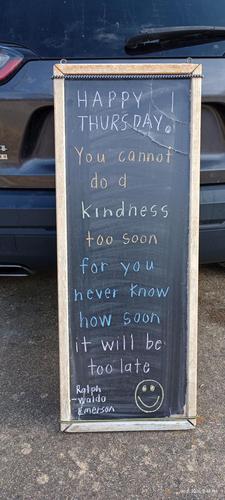 HAPPY !
THURSDAY.
You cannot
do a
kindness
too soon
for you
never know
how soon
it will be
too late
Ralph
-waldo
Emerson